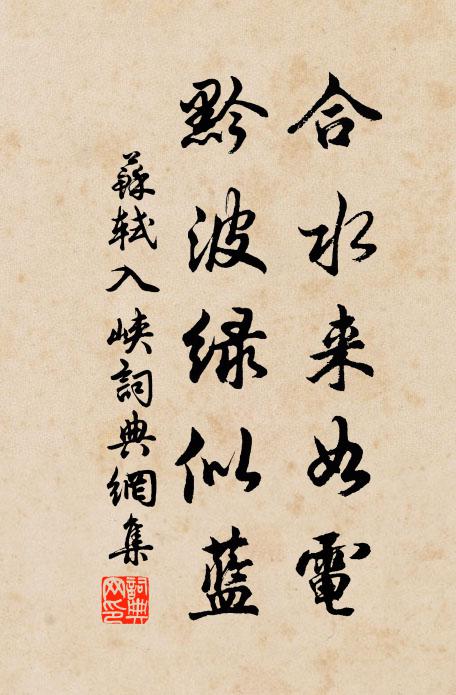 合水来如電
黔波绿似藍
蘇軾入峽詞典網集
詞典网印